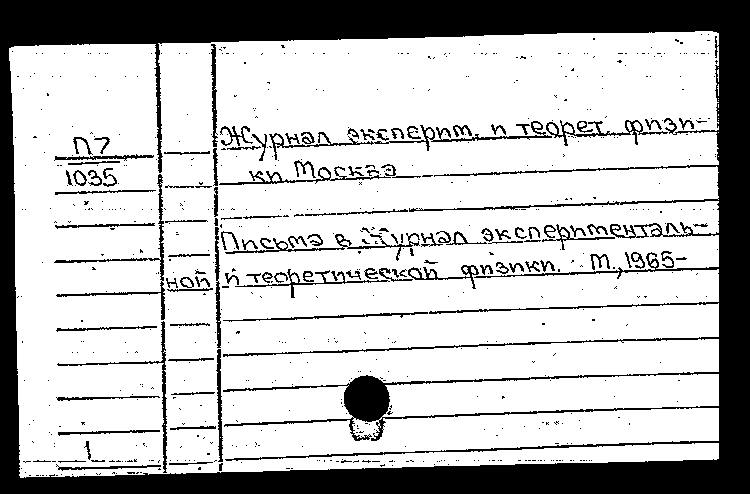 Журнал эксперим. и теорет. физи-
П7
1035
ки Москва
Письма в Журнал эксперименталь-
ной и теоретической физики. М., 1965-
1